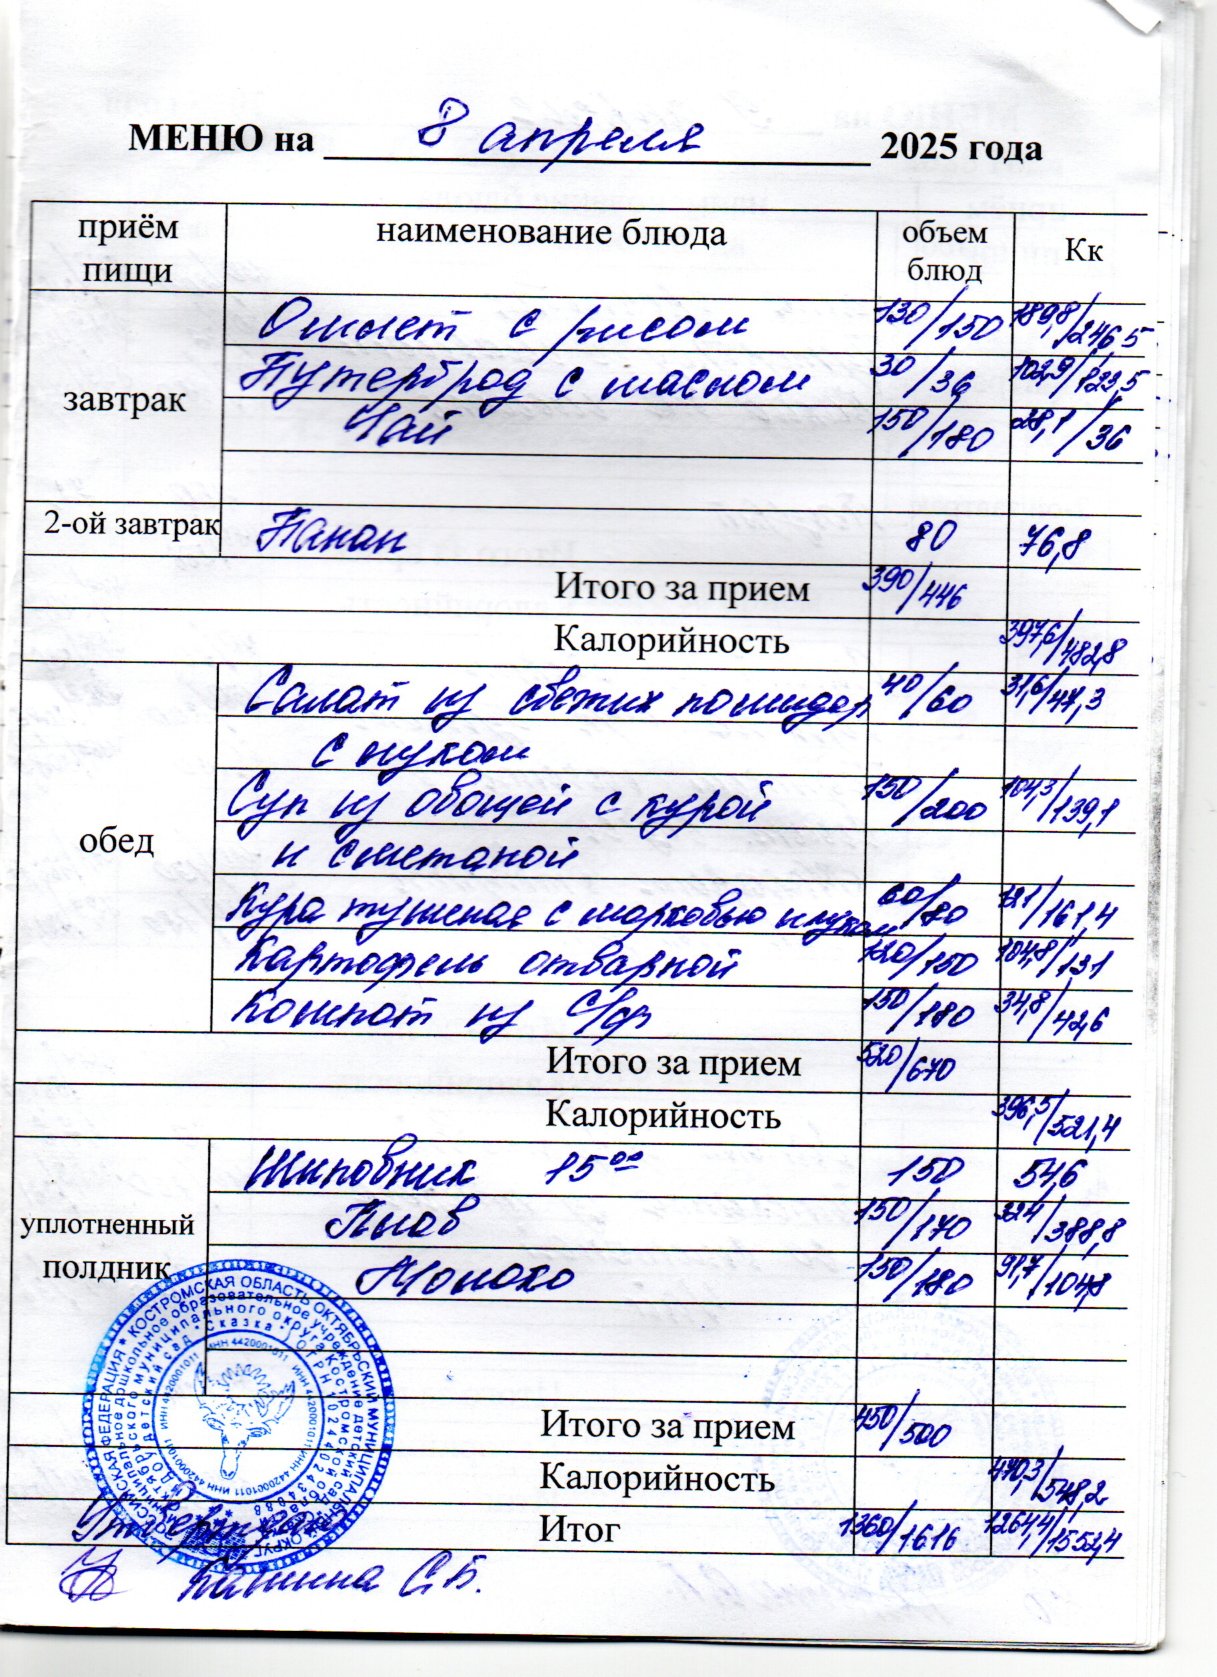 МЕНЮ на 8 апреля 2025 года
приём пищи наименование блюда объем блюд Кк
завтрак
Омлет с рисом 130/150 189,8/246,5
Бутерброд с маслом 30/36 102,9/123,5
Чай 150/180 28,1/36
2-ой завтрак Банан 80 76,8
Итого за прием 390/446
Калорийность 397,6/482,8
обед
Салат из свежих помидор 40/60 31,6/47,3
с луком
Суп из овощей с курой 150/200 104,3/139,1
и сметаной
Кура тушеная с морковью и луком 60/80 121/161,4
Картофель отварной 120/150 104,8/131
Компот из с/ф 150/180 34,8/42,6
Итого за прием 520/670
Калорийность 396,5/521,4
уплотненный полдник
Шиповник 15 00 150 54,6
Плов 150/170 324/388,8
Молоко 150/180 91,7/104,8
Итого за прием 450/500
Калорийность 470,3/548,2
Итог 1360/1616 1264,4/1552,4
РОССИЙСКАЯ ФЕДЕРАЦИЯ * КОСТРОМСКАЯ ОБЛАСТЬ ОКТЯБРЬСКИЙ МУНИЦИПАЛЬНЫЙ ОКРУГ
муниципальное дошкольное образовательное учреждение детский сад
Октябрьского муниципального округа Костромской области
детский сад "Сказка" ОГРН
ИНН 4420001011
Утверждаю
С.В.